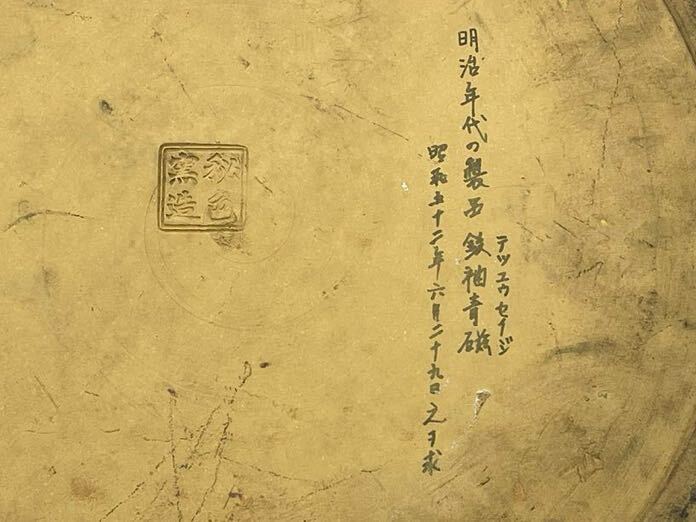 テツユウセイジ
明治年代の製品 鉄袖青磁
昭和五十二年六月二十九日之ヲ求
秘色
窯造